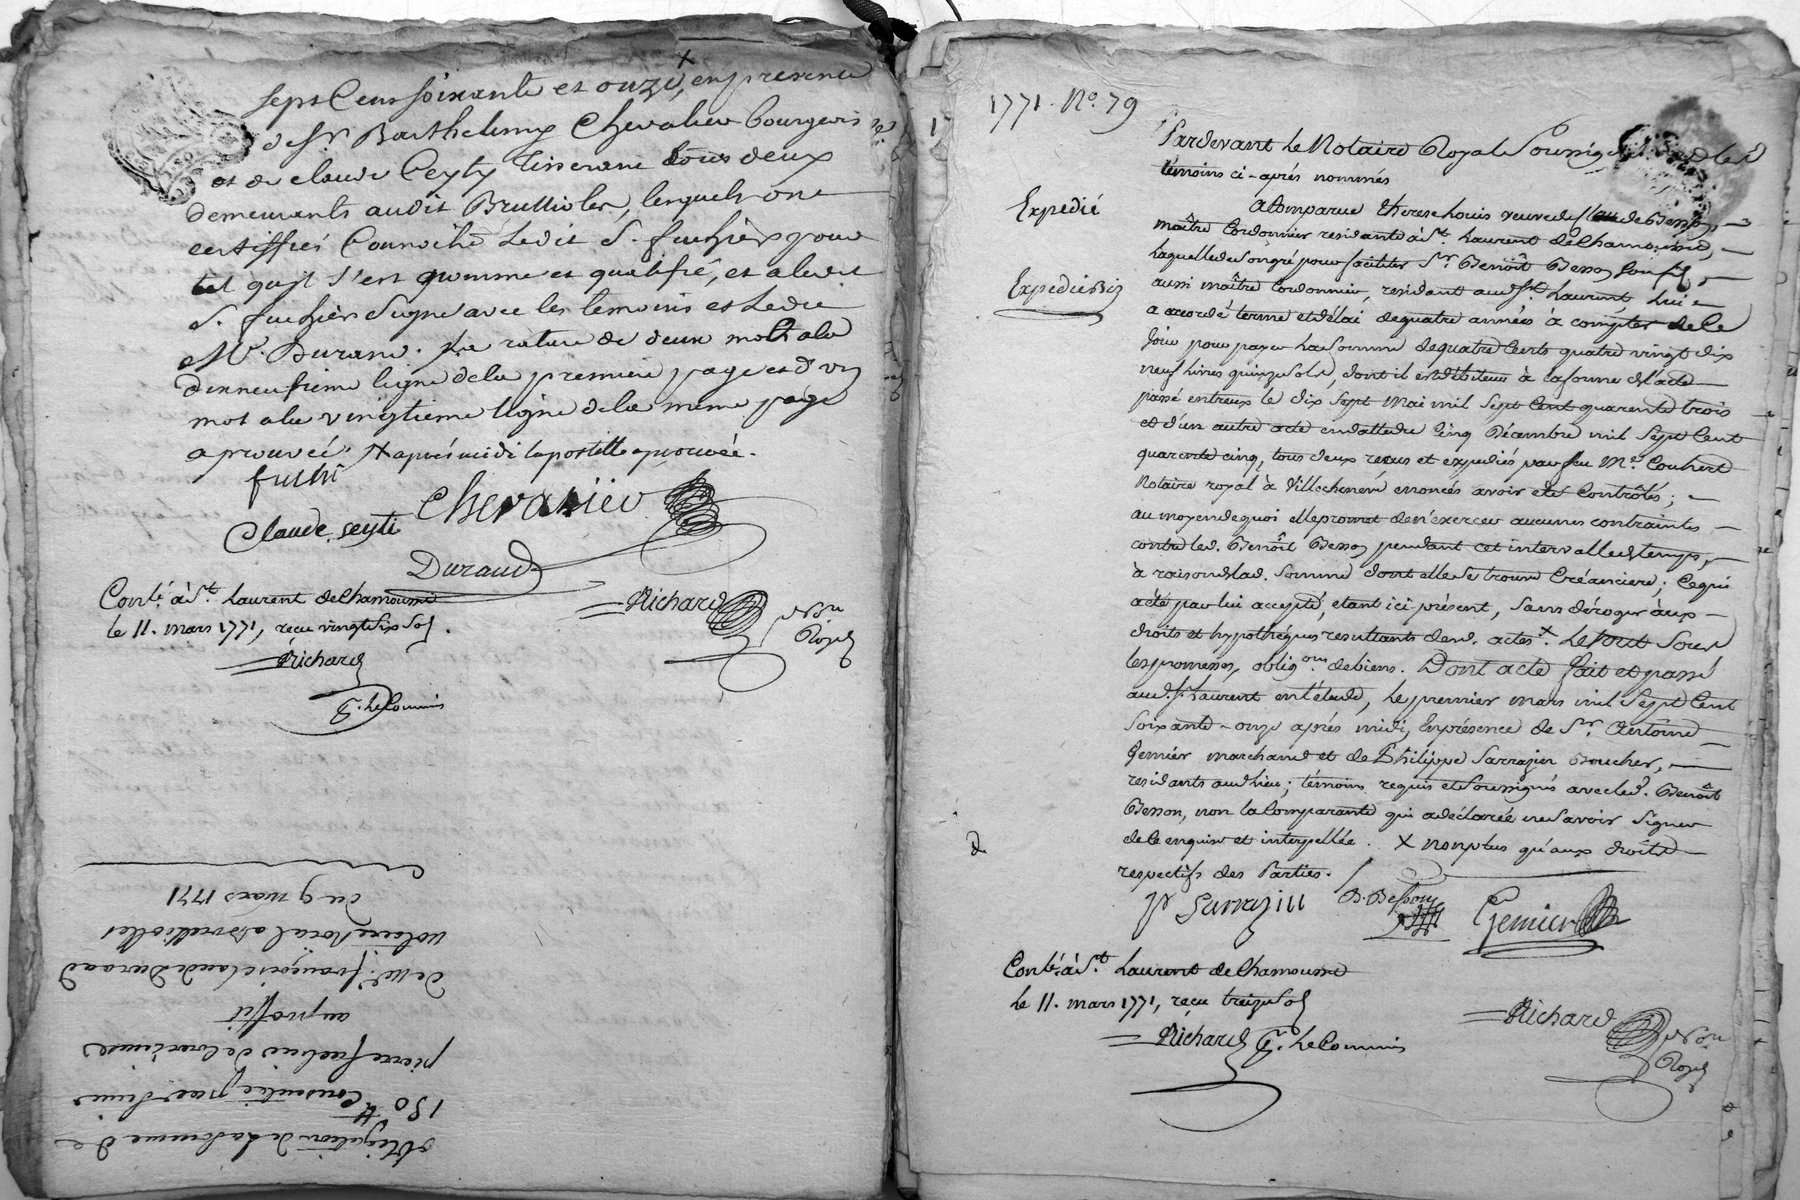 sept Cens soixante et onze, x en presence
de Sr. Barthelemy Chevalier bourgeois
et de claude Ceyty tisserane tous deux
demeurants audit Brullioles, lesquels ont
certiffiés Connoitre ledit S. fuchier pour
tel qu'il s'est nommé et qualifié, et a ledit
S. fuchier signé avec les temoins et ledit
Me. Durand. La rature de deux mots a la
dixneufvieme ligne de la premiere page et d'un
mot a la vingtieme ligne de la meme page
aprouvée. X aprés midi lapostille aprouvée.
Claude. seyti Chevallier
Durand
Conté. à St. Laurent de Chamousset
le 11. mars 1771, reçu vingt six sols.
Richard
Richard
Nore
Royal
G. le Commis
obligation de la somme de
150 ₶ Consentie par Sieur
pierre
au proffit
de Me. françois claude Durand
notaire Royal a Brullioles
du 9 mars 1771
1771. No. 79
Pardevant le Notaire Royal Soussigné
témoins ci-après nommés
Expedié
a Comparue therese Louis veuve de Claude Besson,
maître Cordonnier residante à St. Laurent de Chamousset,
laquelle de son gré pour faciliter Sr. Benoît Besson son fils,
Expedié Bis
aussi maître Cordonnier, residant audit St. Laurent, lui
a accordé terme et délai de quatre années à compter de ce
jour pour payer la somme de quatre Cents quatre vingt dix
neuf livres quinze sols, dont il est débiteur à la forme d'acte
passé entr'eux le dix sept Mai mil sept Cent quarente trois
et d'un autre acte en datte du Cinq Décembre mil sept Cent
quarente cinq, tous deux reçus et expediés par feu Me. Couhert
Notaire royal à Villechenève enoncés avoir eté Contrôlés;
au moyen de quoi elle promet de n'exercer aucunes contraintes
contre led. Benoît Besson pendant cet intervalle de temps,
à raison de lad. somme dont elle se trouve Créanciere; Ce qui
a été par lui accepté, etant ici présent, sans déroger aux
droits et hypothéques resultants desd. actes. X Le tout sous
les promesses, obligons. de biens. Dont acte fait et passé
aud. St. Laurent en l'étude, le premier mars mil sept Cent
soixante-onze aprés midi, En présence de Sr. Antoine
Gemier marchand et de Philippe Sarrazin Boucher,
residants aud. lieu; témoins requis et soussignés avec led. Benoît
Besson, non la Comparante qui a déclaré ne savoir signer
de ce enquise et interpellée. X non plus qu'aux droits
respectifs des Parties.
p Sarrazin B. Besson Gemier
Conté. à St. Laurent de Chamousset
le 11. mars 1771, reçu treize sols
Richard
Nore
Royal
Richard G. le Commis